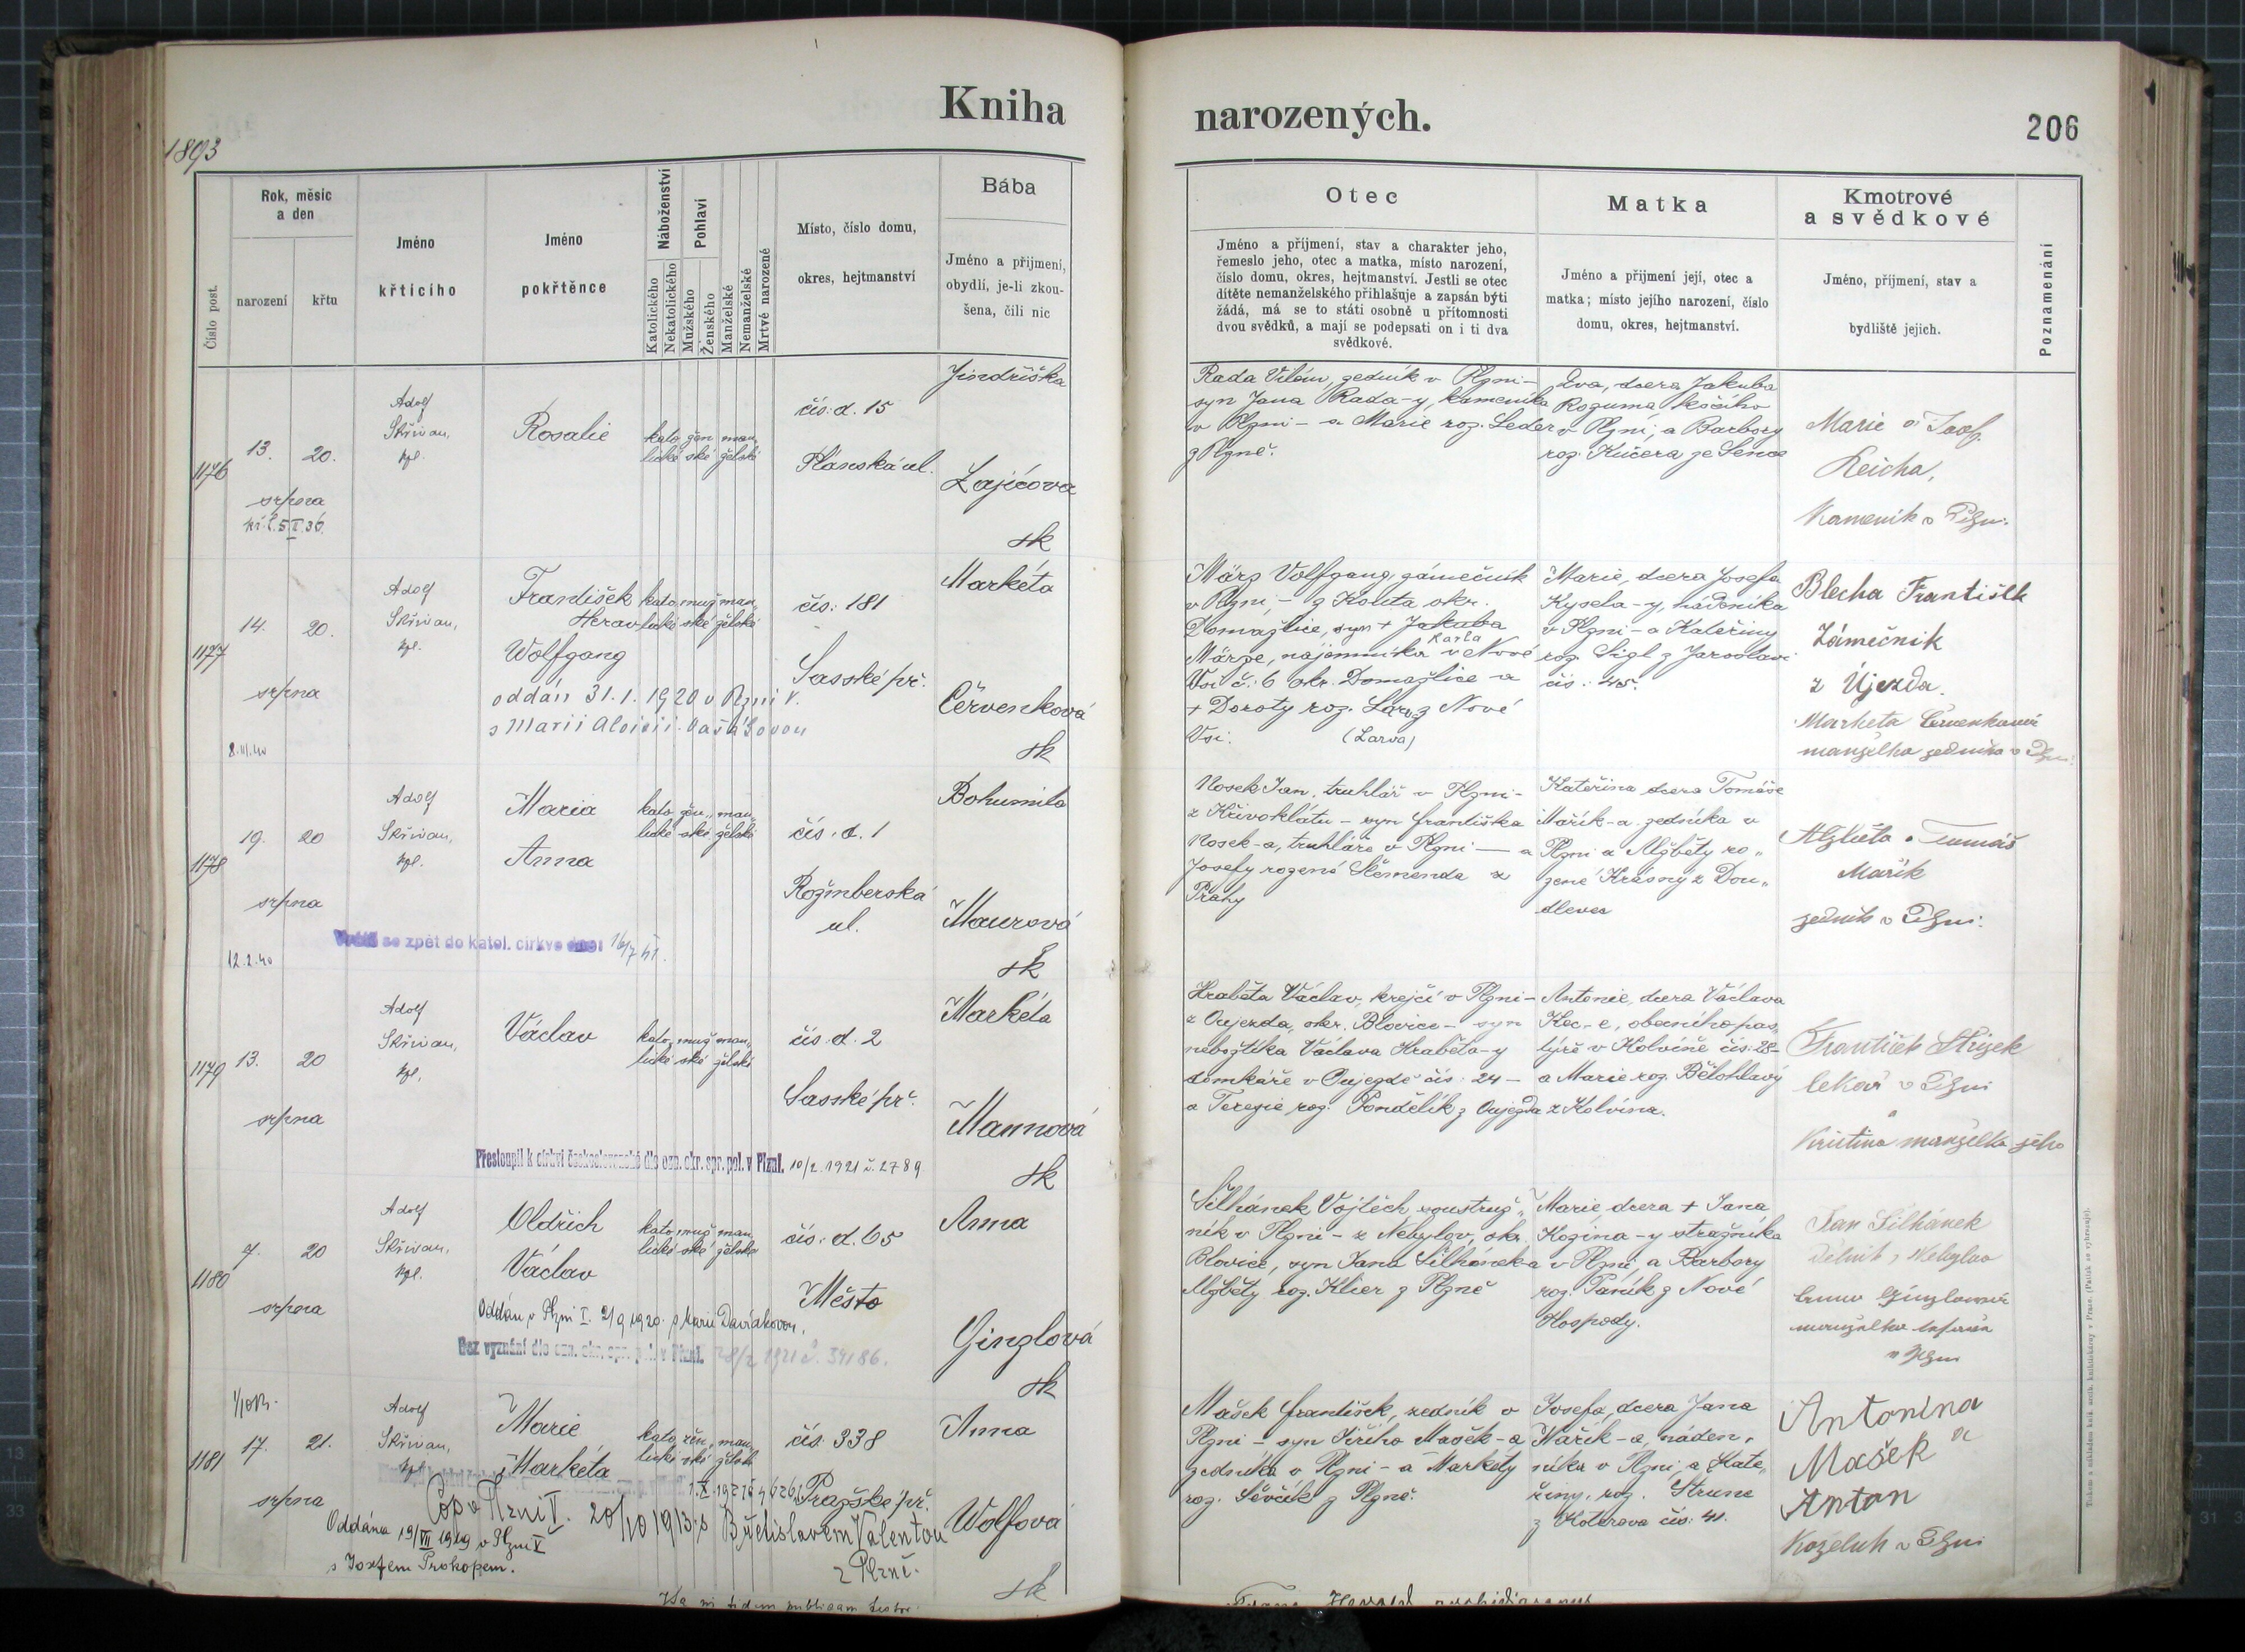 Kniha
narozených.
206
1893
Číslo post.
Rok, měsíc
a den
narození
křtu
Jméno
křtícího
Jméno
pokřtěnce
Náboženství
Katolického
Nekatolického
Pohlaví
Mužského
Ženského
Manželské
Nemanželské
Mrtvě narozené
Místo, číslo domu,
okres, hejtmanství
Bába
Jméno a přijmení,
obydlí, je-li zkou-
šena, čili nic
Otec
Jméno a příjmení, stav a charakter jeho,
řemeslo jeho, otec a matka, místo narození,
číslo domu, okres, hejtmanství. Jestli se otec
dítěte nemanželského přihlašuje a zapsán býti
žádá, má se to státi osobně u přítomnosti
dvou svědků, a mají se podepsati on i ti dva
svědkové.
Matka
Jméno a přijmení její, otec a
matka; místo jejího narození, číslo
domu, okres, hejtmanství.
Kmotrové
a svědkové
Jméno, příjmení, stav a
bydliště jejich.
Poznamenání
1176
13.
20.
srpna
Adolf
Skřivan,
kpl.
Rosalie
kato, žen, man,
lické ské želské
čís. d. 15
Plánská ul.
Jindřiška
Zajícova
sk
Rada Vilém, zedník v Plzni-
syn Jana Rada-y, kameníka
v Plzni - a Marie roz. Leder
z Plzně.
Eva, dcera Jakuba
Rozuma kočího
v Plzni, a Barbory
roz. Kučera ze Senec
Marie a Josef
Reicha,
Kameník v Plzni.
1177
14.
20.
srpna
8.III.40
Adolf
Skřivan,
kpl.
František
Wolfgang
kato, muž, man,
lické ské želské
oddán 31.1.1920 v Plzni V.
s Marii Aloisii Vašátovou
čís: 181
Sasské př.
Markéta
Červenková
sk
März Volfgang, zámečník
v Plzni, - z Kouta okr.
Domažlice, syn + Jakuba
Karla
Märze, nájemníka v Nové
Vsi č. 6 okr. Domažlice a
+ Doroty roz. Larv z Nové
Vsi. (Larva)
Marie, dcera Josefa
Kysela-y, nádeníka
v Plzni - a Kateřiny
roz. Sigl z Jaroslavi
čís. 45.
Blecha František
Zámečník
z Újezda.
Marketa Červenková
manželka zedníka v Plzni.
1178
19.
20
srpna
12.2.40
Adolf
Skřivan,
kpl.
Maria
Anna
kato, žen, man,
lické ské želské
Vrátil se zpět do katol. církve dne: 16/7 41.
čís. d. 1
Rožmberská
ul.
Bohumila
Maurová
sk
Nosek Jan, truhlář v Plzni-
z Křivoklátu - syn Františka
Nosek-a, truhláře v Plzni - a
Josefy rozené Slemenda z
Prahy
Kateřina dcera Tomáše
Mařík-a zedníka v
Plzni a Alžběty ro„
zené Krásný z Dou„
dlevec
Alžběta a Tomáš
Mařík
zedník v Plzni.
1179
13.
20
srpna
Adolf
Skřivan,
kpl.
Václav
kato, muž, man,
lické ské želské
čís. d. 2
Sasské př.
Přestoupil k církvi československé dle ozn. okr. spr. pol. v Plzni. 10/2.1921 č. 2789
Markéta
Mannová
sk
Hraběta Václav, krejčí v Plzni-
z Oujezda, okr. Blovice - syn
nebožtíka Václava Hraběta-y
domkáře v Oujezdě čís: 24 -
a Terezie roz. Pondělík z Oujezda
Antonie, dcera Václava
Kec-e, obecního pas„
týře v Kolvíně čís: 28-
a Marie roz. Bělohlavý
z Kolvína.
František Strizek
lékař v Plzni
a
Kristina manželka jeho
1180
7.
20
srpna
Adolf
Skřivan,
kpl.
Oldřich
Václav
kato, muž, man,
lické ské želské
čís. d. 65
Město
Oddán v Plzni I. 21/9 1920. s Marií Davídkovou.
Bez vyznání dle ozn. okr. spr. pol. v Plzni. 28/2 1921 č. 34186.
Anna
Ginzlová
sk
Šilhánek Vojtěch, soustruž„
ník v Plzni - z Nebylov, okr.
Blovice, syn Jana Šilhánek-a
Alžběty roz. Klier z Plzně
Marie dcera + Jana
Kozina-y strážníka
v Plzni, a Barbory
roz. Paník z Nové
Hospody.
Jan Šilhánek
dělník z Nebylov
Ginzlová
manželka
v Plzni
1181
17.
21.
srpna
Adolf
Skřivan,
kpl.
Marie
Markéta
kato, žen, man,
lické ské želské
čís. 338
Pražské př.
Cop. v Plzni I. 20/10 1913 s Břetislavem Valentou
z Plzně.
Oddána 19/VII 1919 v Plzni V
s Josefem Prokopem.
Anna
Wolfova
sk
Mašek František, zedník v
Plzni - syn Jiřího Mašek-a
zedníka v Plzni - a Markéty
roz. Ševčík z Plzně.
Josefa, dcera Jana
Mařík-a, náden„
níka v Plzni, a Kate„
řiny, roz. Strunc
z Koterova čís: 41.
Antonina
Mašek a
Anton
Kozeluh v Plzni